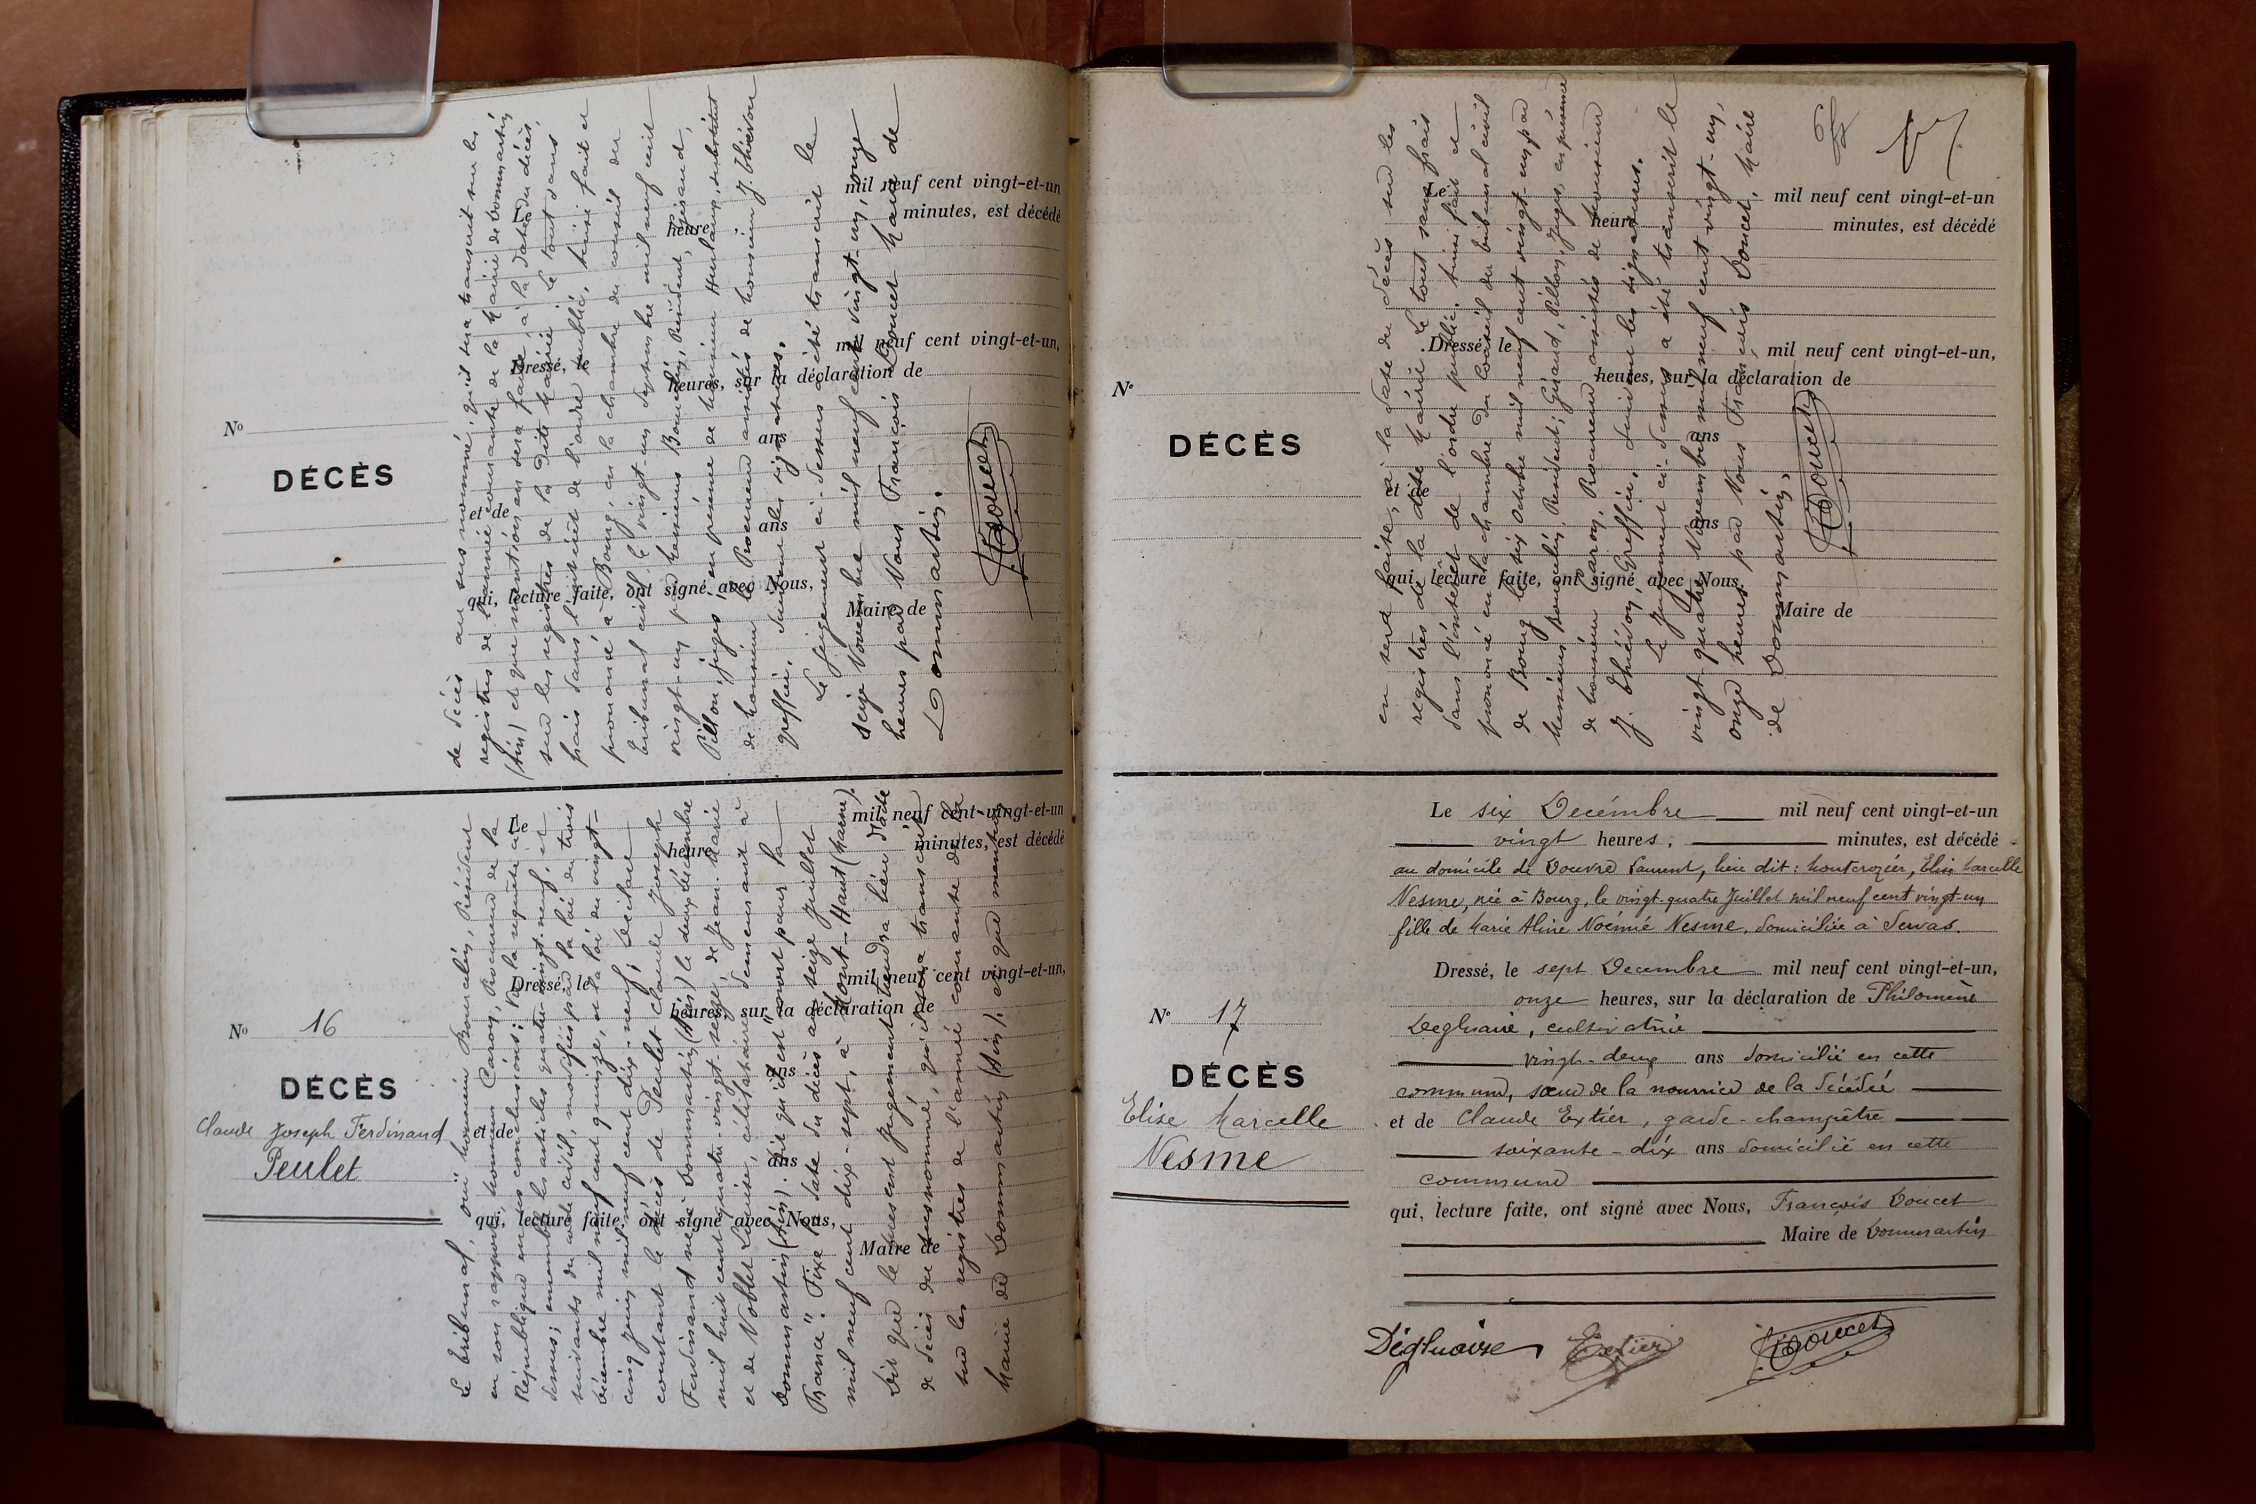 mil neuf cent vingt-et-un
Le
heure
minutes, est décédé
Dressé, le
mil neuf cent vingt-et-un,
heures, sur la déclaration de
No
ans
DÉCÈS
et de
ans
qui, lecture faite, ont signé avec Nous,
Maire de
de décès au sus nommé, qu'il sera transcrit sur les
registres de l'année courante de la Mairie de Dommartin
(Ain) et que mention en sera faite, à la date du décès,
sur les registres de la dite Mairie. Le tout sans
frais dans l'intérêt de l'ordre public. Ainsi fait et
prononcé à Bourg, en la chambre du conseil du
tribunal civil, le vingt-un Septembre mil neuf cent
vingt-un par Messieurs Bouculin, Président, Géraud,
Pillon, juges, en présence de Monsieur substitut
de Monsieur le Procureur assistés de Monsieur J. Thiévon
greffier. Suivent les signatures.
Le Jugement ci-dessus a été transcrit le
seize Novembre mil neuf cent vingt-un, onze
heures par Nous François Doucet Maire de
Dommartin.
Doucet
Le
mil neuf cent vingt-et-un
heure
minutes, est décédé
Dressé, le
mil neuf cent vingt-et-un,
heures, sur la déclaration de
No 16
ans
DÉCÈS
Claude Joseph Ferdinand
Peulet
et de
ans
qui, lecture faite, ont signé avec Nous,
Maire de
Le tribunal, ouï Monsieur Bouculin, Président
en son rapport, Monsieur Caron, Procureur de la
République en ses conclusions; Vu la requête ci-
dessus; ensemble les articles quatre-vingt-neuf, et
suivants du code civil, modifiés par la loi du trois
Décembre mil neuf cent quinze, et la loi du vingt-
cinq Juin mil neuf cent dix-neuf; Déclare
constant le décès de Peulet Claude Joseph
Ferdinand né à Dommartin (Ain) le deux Décembre
mil huit cent quatre-vingt-seize, de Jean-Marie
et de Noblet Louise, célibataire, demeurant à
Dommartin (Ain). Dit qu'il est "mort pour la
France". Fixe la date du décès au seize Juillet
mil neuf cent dix-sept, à Mont-Haut (Marne).
Dit que le présent Jugement tiendra lieu d'acte
de décès du susnommé, qu'il sera transcrit
sur les registres de l'année courante de la
Mairie de Dommartin (Ain). et que mention
17
Le
mil neuf cent vingt-et-un
heure
minutes, est décédé
Dressé, le
mil neuf cent vingt-et-un,
heures, sur la déclaration de
No
ans
DÉCÈS
et de
ans
qui, lecture faite, ont signé avec Nous,
Maire de
en sera faite, à la date du décès sur les
registres de la dite Mairie. Le tout sans frais
dans l'intérêt de l'ordre public. Ainsi fait et
prononcé en la chambre du Conseil du tribunal civil
de Bourg le six Octobre mil neuf cent vingt-un par
Messieurs Bouculin, Président; Géraud, Pillon, Juges, en présence
de Monsieur Caron, Procureur assistés de Monsieur
J. Thiévon, Greffier. Suivent les signatures.
Le Jugement ci-dessus a été transcrit le
vingt-quatre Novembre mil neuf cent vingt-un,
onze heures par Nous François Doucet, Maire
de Dommartin.
Doucet
Le six Decémbre mil neuf cent vingt-et-un
vingt heures, minutes, est décédé
au domicile de Douvre Laurent, lieu dit: Montcrozier, Elise Marcelle
Nesme, née à Bourg, le vingt-quatre Juillet mil neuf cent vingt-un
fille de Marie Aline Noémie Nesme, domiciliée à Servas.
Dressé, le sept Decembre mil neuf cent vingt-et-un,
onze heures, sur la déclaration de Philomène
Degluaire, cultivatrice
No 17
vingt-deux ans domicilié en cette
DÉCÈS
commune, sœur de la nourrice de la décédée
Elise Marcelle
Nesme
et de Claude Extier, garde-champêtre
soixante-dix ans domicilié en cette
commune
qui, lecture faite, ont signé avec Nous, François Doucet
Maire de Dommartin
Dégluaire Extier Doucet